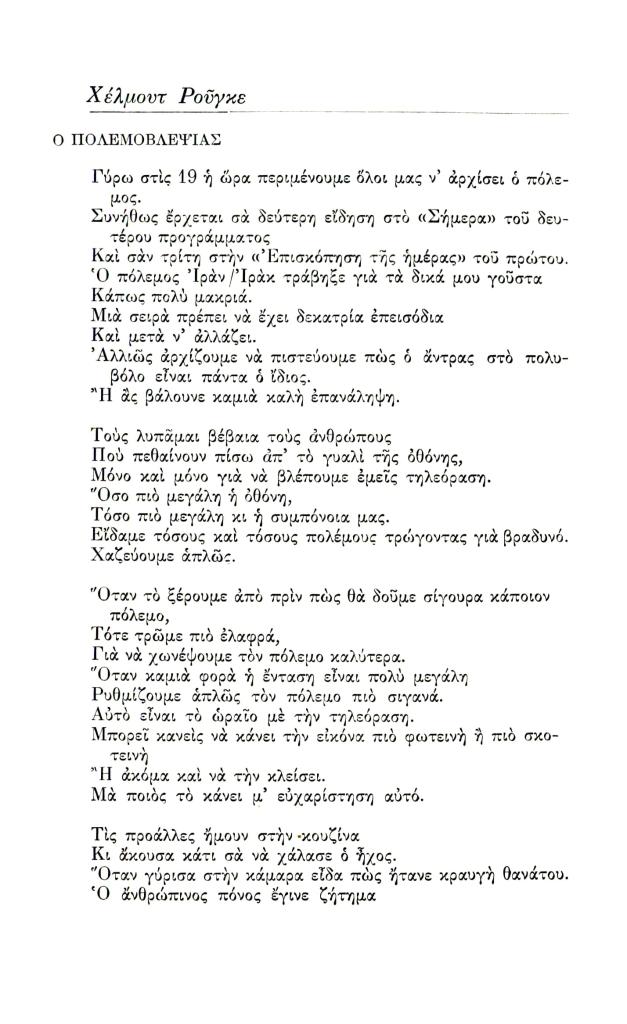 Χέλμουτ Ροῦγκε
Ο ΠΟΛΕΜΟΒΛΕΨΙΑΣ
Γύρω στὶς 19 ἡ ὥρα περιμένουμε ὅλοι μας ν' ἀρχίσει ὁ πόλε-
μος.
Συνήθως ἔρχεται σὰ δεύτερη εἴδηση στὸ «Σήμερα» τοῦ δευ-
τέρου προγράμματος
Καὶ σὰν τρίτη στὴν «Ἐπισκόπηση τῆς ἡμέρας» τοῦ πρώτου.
Ὁ πόλεμος Ἰρὰν/Ἰρὰκ τράβηξε γιὰ τὰ δικά μου γοῦστα
Κάπως πολὺ μακριά.
Μιὰ σειρὰ πρέπει νὰ ἔχει δεκατρία ἐπεισόδια
Καὶ μετὰ ν' ἀλλάζει.
Ἀλλιῶς ἀρχίζουμε νὰ πιστεύουμε πὼς ὁ ἄντρας στὸ πολυ-
βόλο εἶναι πάντα ὁ ἴδιος.
Ἢ ἂς βάλουνε καμιὰ καλὴ ἐπανάληψη.
Τοὺς λυπᾶμαι βέβαια τοὺς ἀνθρώπους
Ποὺ πεθαίνουν πίσω ἀπ' τὸ γυαλὶ τῆς ὀθόνης,
Μόνο καὶ μόνο γιὰ νὰ βλέπουμε ἐμεῖς τηλεόραση.
Ὅσο πιὸ μεγάλη ἡ ὀθόνη,
Τόσο πιὸ μεγάλη κι ἡ συμπόνοια μας.
Εἴδαμε τόσους καὶ τόσους πολέμους τρώγοντας γιὰ βραδυνό.
Χαζεύουμε ἁπλῶς.
Ὅταν τὸ ξέρουμε ἀπὸ πρὶν πὼς θὰ δοῦμε σίγουρα κάποιον
πόλεμο,
Τότε τρῶμε πιὸ ἐλαφρά,
Γιὰ νὰ χωνέψουμε τὸν πόλεμο καλύτερα.
Ὅταν καμιὰ φορὰ ἡ ἔνταση εἶναι πολὺ μεγάλη
Ρυθμίζουμε ἁπλῶς τὸν πόλεμο πιὸ σιγανά.
Αὐτὸ εἶναι τὸ ὡραῖο μὲ τὴν τηλεόραση.
Μπορεῖ κανεὶς νὰ κάνει τὴν εἰκόνα πιὸ φωτεινὴ ἢ πιὸ σκο-
τεινὴ
Ἢ ἀκόμα καὶ νὰ τὴν κλείσει.
Μὰ ποιὸς τὸ κάνει μ' εὐχαρίστηση αὐτό.
Τὶς προάλλες ἤμουν στὴν κουζίνα
Κι ἄκουσα κάτι σὰ νὰ χάλασε ὁ ἦχος.
Ὅταν γύρισα στὴν κάμαρα εἶδα πὼς ἤτανε κραυγὴ θανάτου.
Ὁ ἄνθρώπινος πόνος ἔγινε ζήτημα